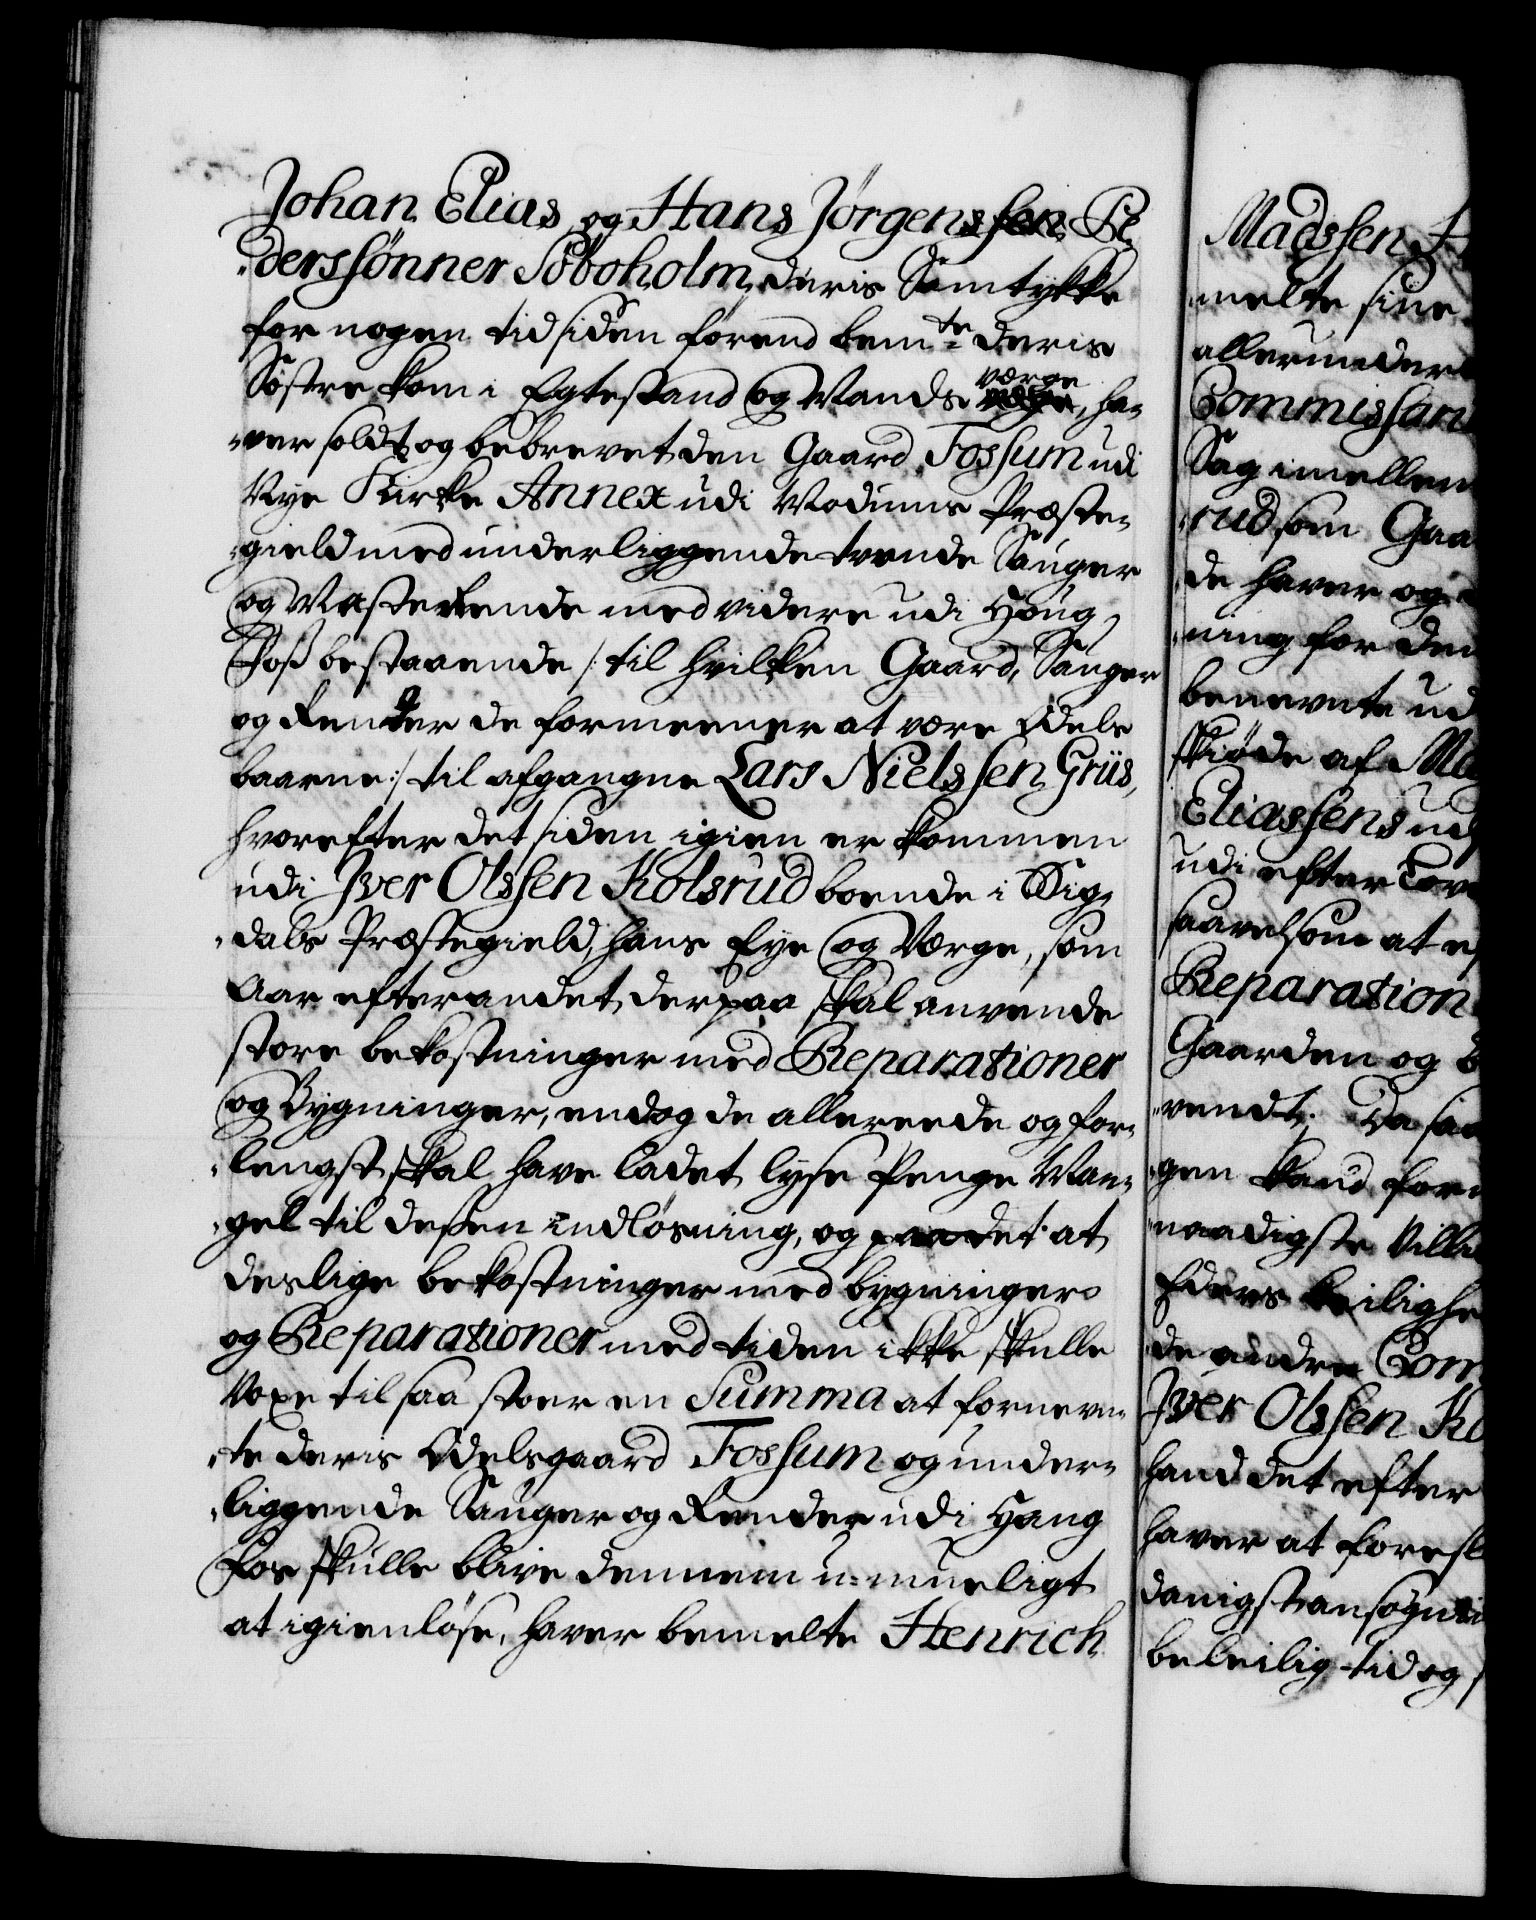 Johan Elias og Hans Jørgenssen Pe,
„derssønner Söboholm, deris Samtykke
for nogen tid siden forend bemte deris
Søstre kom i Egtestand og Mands værge, ha„
„ver soldt og bebrevet den Gaard Fossum udi
Nye Kirke Annex udi Modums Præste„
„gield med underliggende tvende Sauger
og Vasterende med videre udi Houg,
Foss bestaaende /: til hvilken Gaard, Sauger
og Render de formeener at være Odels
baarne :/ til afgangne Lars Nielssen Grüs,
hvorefter det siden igien er kommen
udi Iver Olssen Kolsrud boende i Sig,
„dals Præstegield, hans Eye og Værge, som
Aar efter andet derpaa skal anvende
store bekostninger med Reparationer
og Bygninger, endog de allereede og for„
„lengst skal have ladet lyse Penge Man„
„gel til dessen indløsning, og paa det at
deslige bekostninger med bygninger
og Reparationer med tiden ikke skulle
voxe til saa stoer en Summa at fornevn„
„te deris Odelsgaard Fossum og under„
„liggende Sauger og Render udi Haug
Fos skulle blive dennem u-mueligt
at igienløse, haver bemelte Henrich
Madssen H
melte sine
allerunder
Commissari
Sag imellem
„rud som Gaa
de haver og
„ning for den
benevnte ud
skiøde af Ma
Eliassens ud
udi efter Lov
saavelsom at e
Reparation
Gaarden og B
„vendt. Da saa
„gen kand for
naadigste Villi
Eders leilighe
de andre Com
Iver Olssen Ko
hand det efter
haver at forest
danigst ansøgni
beleilig tid og s